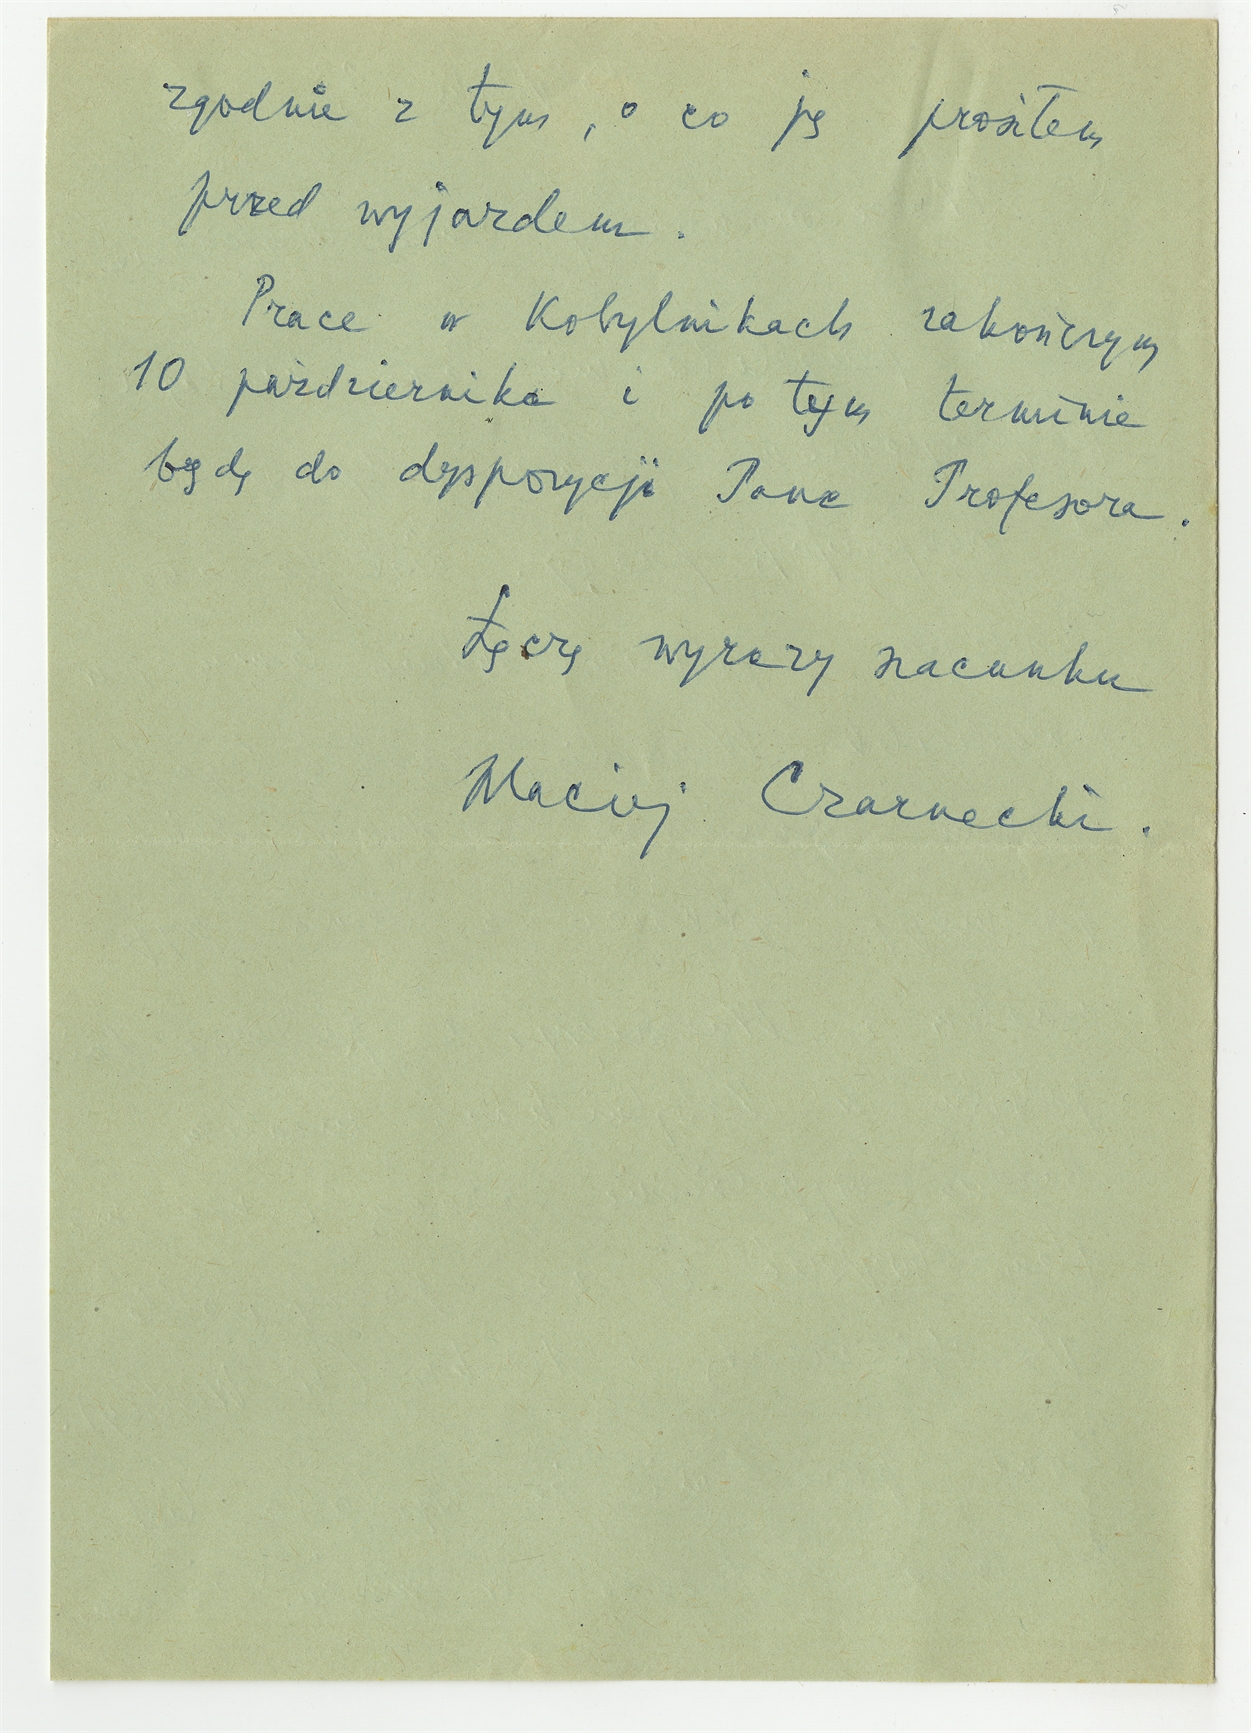 zgodnie z tym, o co ją prosiłem
przed wyjazdem.
Prace w Kobylnikach zakończymy
10 października i po tym terminie
będę do dyspozycji Pana Profesora.
Łączę wyrazy szacunku
Maciej Czarnecki.